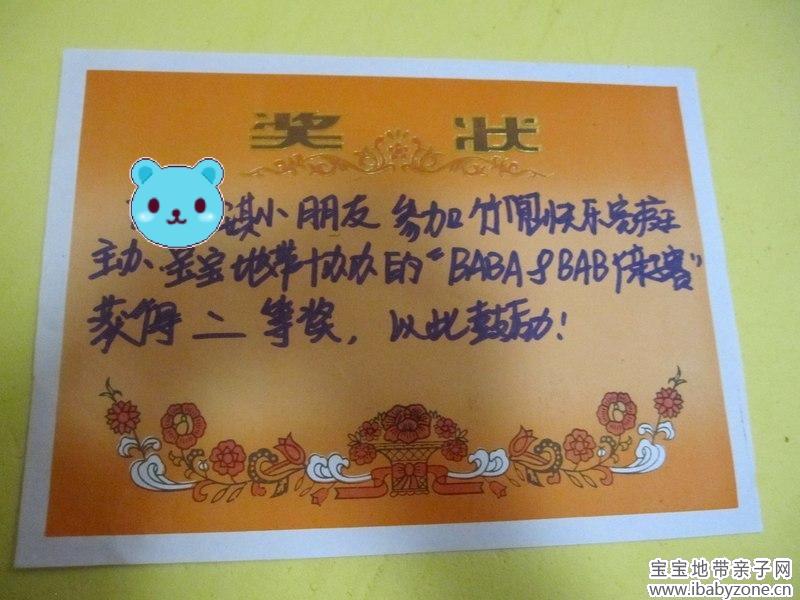 奖状
淇小朋友 参加竹间快乐客栈
主办、宝宝地带协办的“BABA&BAB亲子赛”
获得二等奖，以此鼓励！
宝宝地带亲子网
www.ibabyzone.cn